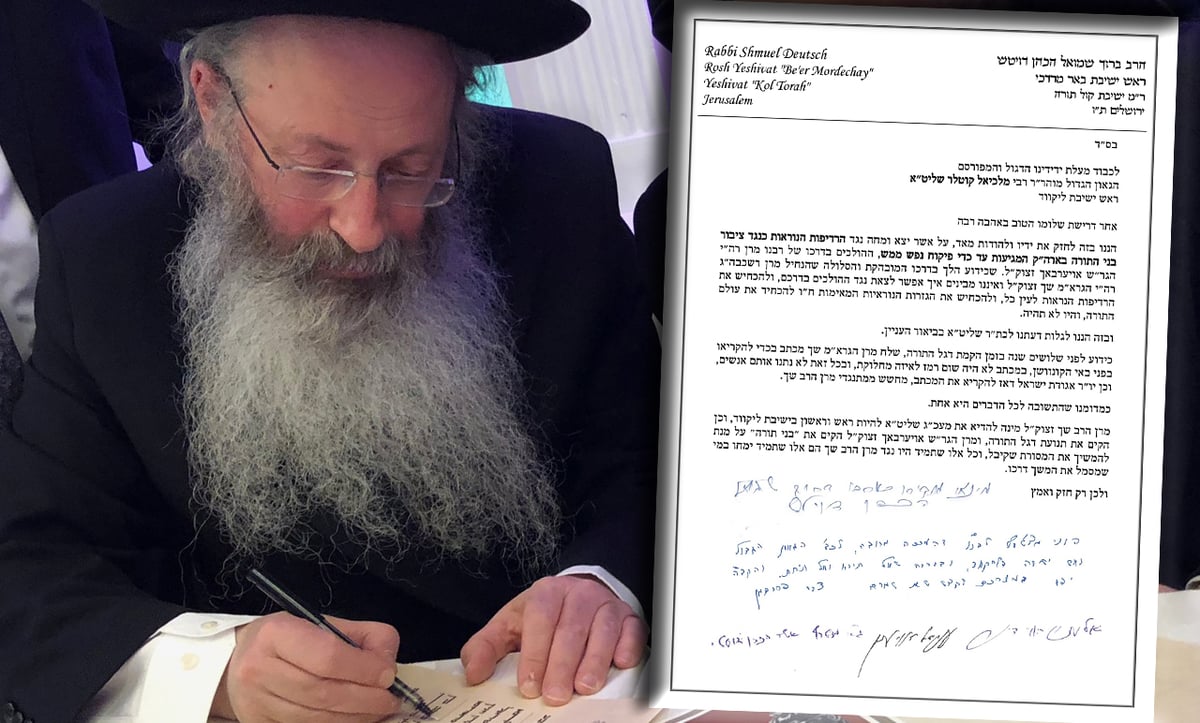 Rabbi Shmuel Deutsch
Rosh Yeshivat "Be'er Mordechay"
Yeshivat "Kol Torah"
Jerusalem
הרב ברוך שמואל הכהן דויטש
ראש ישיבת באר מרדכי
ר"מ ישיבת קול תורה
ירושלים ת"ו
בס"ד
לכבוד מעלת ידידינו הדגול והמפורסם
הגאון הגדול מוהר"ר רבי מלכיאל קוטלר שליט"א
ראש ישיבת ליקווד
אחר דרישת שלומו הטוב באהבה רבה
הננו בזה לחזק את ידיו ולהודות מאד, על אשר יצא ומחה נגד הרדיפות הנוראות כנגד ציבור
בני התורה בארה"ק המגיעות עד כדי פיקוח נפש ממש, ההולכים בדרכו של רבנו מרן רה"י
הגר"ש אויערבאך זצוק"ל. שכידוע הלך בדרכו המובהקת והסלולה שהנחיל מרן רשכבה"ג
רה"י הגרא"מ שך זצוק"ל ואיננו מבינים איך אפשר לצאת נגד ההולכים בדרכם, ולהכחיש את
הרדיפות הנראות לעין כל, ולהכחיש את הגזרות הנוראיות המאימות ח"ו להכחיד את עולם
התורה, והיו לא תהיה.
ובזה הננו לגלות דעתנו לכת"ר שליט"א בביאור העניין.
כידוע לפני שלושים שנה בזמן הקמת דגל התורה, שלח מרן הגרא"מ שך מכתב בכדי להקריאו
בפני באי הקונוושן, במכתב לא היה שום רמז לאיזה מחלוקת, ובכל זאת לא נתנו אותם אנשים,
וכן יו"ר אגודת ישראל דאז להקריא את המכתב, מחשש ממתנגדי מרן הרב שך.
כמדומנו שהתשובה לכל הדברים היא אחת.
מרן הרב שך זצוק"ל מינה להדיא את מעכ"ג שליט"א להיות ראש וראשון בישיבת ליקווד, וכן
הקים את תנועת דגל התורה, ומרן הגר"ש אויערבאך זצוק"ל הקים את "בני תורה" על מנת
להמשיך את המסורת שקיבל, וכל אלו שתמיד היו נגד מרן הרב שך הם אלו שתמיד ימחו במי
שמסמל את המשך דרכו.
ולכן רק חזק ואמץ